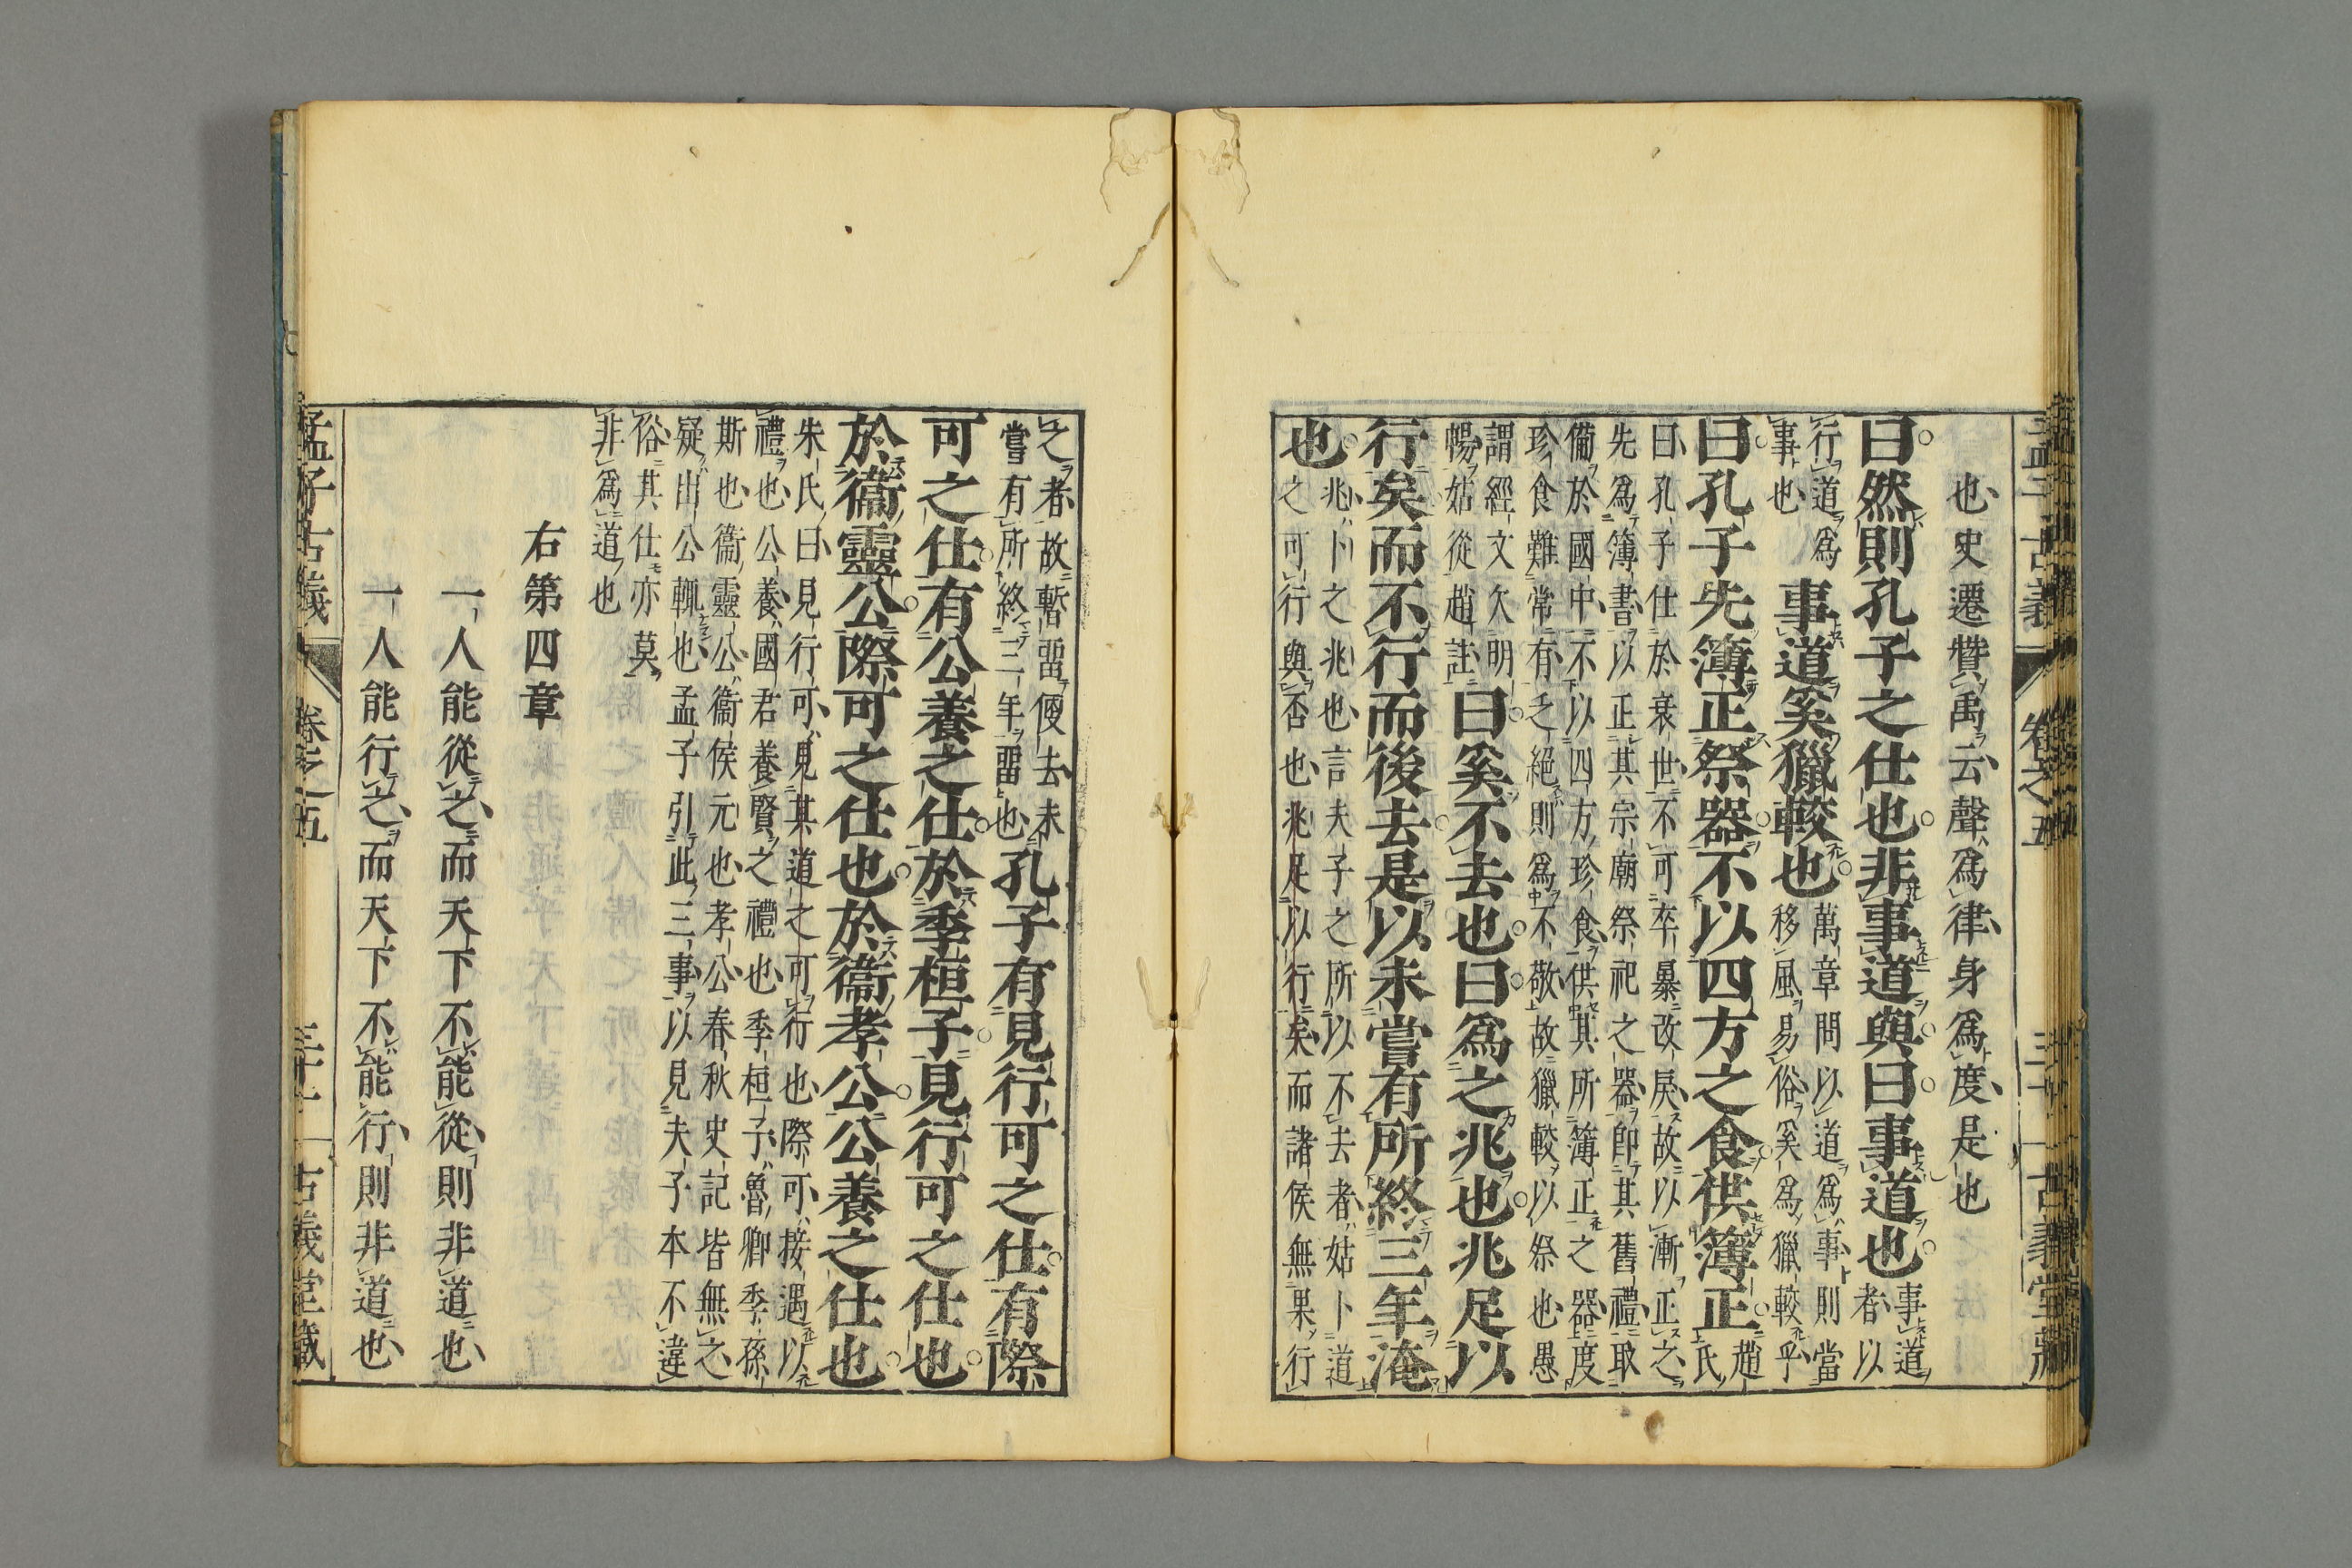 孟子古義　卷之五　古義堂藏
也史遷贊禹云聲爲律身爲度是也
曰然則孔子之仕也非事道與曰事道也事道
者以
行道爲
事也
事道奚獵較也萬章問以道爲事則當
移風易俗奚爲獵較乎
曰孔子先簿正祭器不以四方之食供簿正趙
氏
曰孔子仕於衰世不可卒暴改戻故以漸正之
先爲簿書以正其宗廟祭祀之器卽其舊禮取
備於國中不以四方珍食供其所簿正之器度
珍食難常有乏絕則爲不敬故獵較以祭也愚
謂經文欠明
暢姑從趙註
曰奚不去也曰爲之兆也兆足以
行矣而不行而後去是以未嘗有所終三年淹
也兆卜之兆也言夫子之所以不去者姑卜道
之可行與否也兆足以行矣而諸侯無果行
之者故暫畱便去未
嘗有所終三年畱也
孔子有見行可之仕有際
可之仕有公養之仕於季桓子見行可之仕也
於衞靈公際可之仕也於衞孝公公養之仕也
朱氏曰見行可見其道之可行也際可接遇以
禮也公養國君養賢之禮也季桓子魯卿季孫
斯也衞靈公衞侯元也孝公春秋史記皆無之
疑出公輒也孟子引此三事以見夫子本不違
俗其仕亦莫
非爲道也
右第四章
一人能從之而天下不能從則非道也
一人能行之而天下不能行則非道也
孟子古義　卷之五　古義堂藏